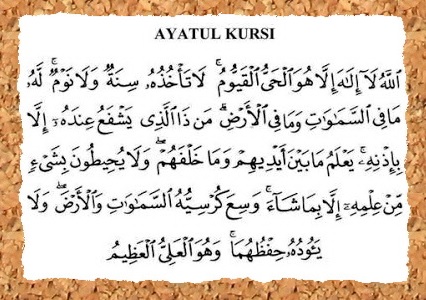 AYATUL KURSI
اللَّهُ لَآ إِلَٰهَ إِلَّا هُوَ الْحَيُّ الْقَيُّومُ ۚ لَا تَأْخُذُهُۥ سِنَةٌ وَلَا نَوْمٌ ۚ لَّهُۥ
مَا فِي السَّمَاوَاتِ وَمَا فِي الْأَرْضِ ۗ مَن ذَا الَّذِي يَشْفَعُ عِندَهُۥٓ إِلَّا
بِإِذْنِهِۦ ۚ يَعْلَمُ مَا بَيْنَ أَيْدِيهِمْ وَمَا خَلْفَهُمْ ۖ وَلَا يُحِيطُونَ بِشَيْءٍ
مِّنْ عِلْمِهِۦٓ إِلَّا بِمَا شَآءَ ۚ وَسِعَ كُرْسِيُّهُ السَّمَاوَاتِ وَالْأَرْضَ ۖ وَلَا
يَـُٔودُهُۥ حِفْظُهُمَا ۚ وَهُوَ الْعَلِيُّ الْعَظِيمُ